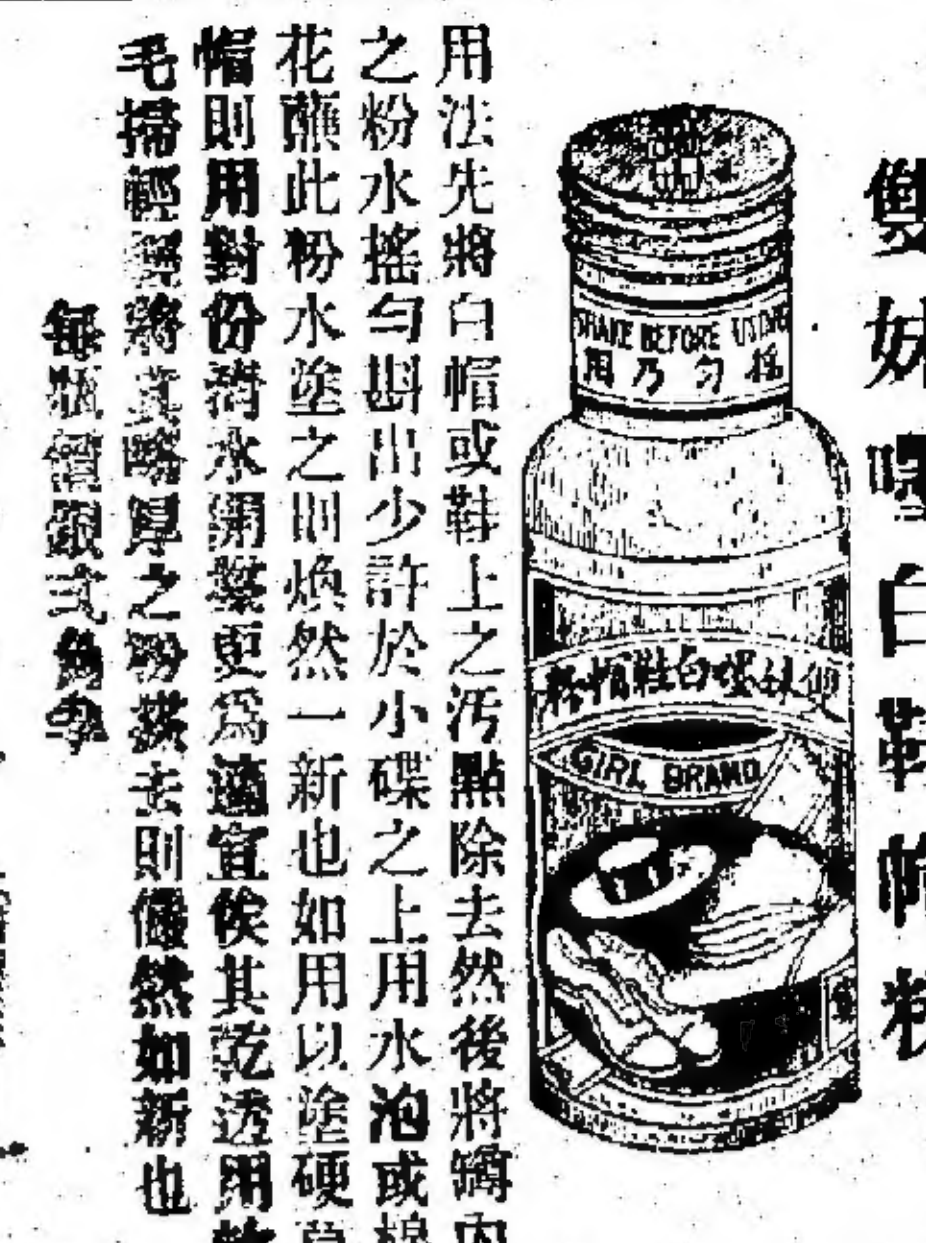 雙妹嘜白鞋帽粉
SHAKE BEFORE USING
搖勻乃用
雙妹嘜白鞋帽粉
GIRL BRAND
用法先將白帽或鞋上之汚點除去然後將罇內
之粉水搖勻斟出少許於小碟之上用水泡或棉
花蘸此粉水塗之則煥然一新也如用以塗硬草
帽則用對份淸水開勻更爲適宜俟其乾透用軟
毛掃輕輕將其略厚之粉掃去則儼然如新也
每瓶價銀弍角半